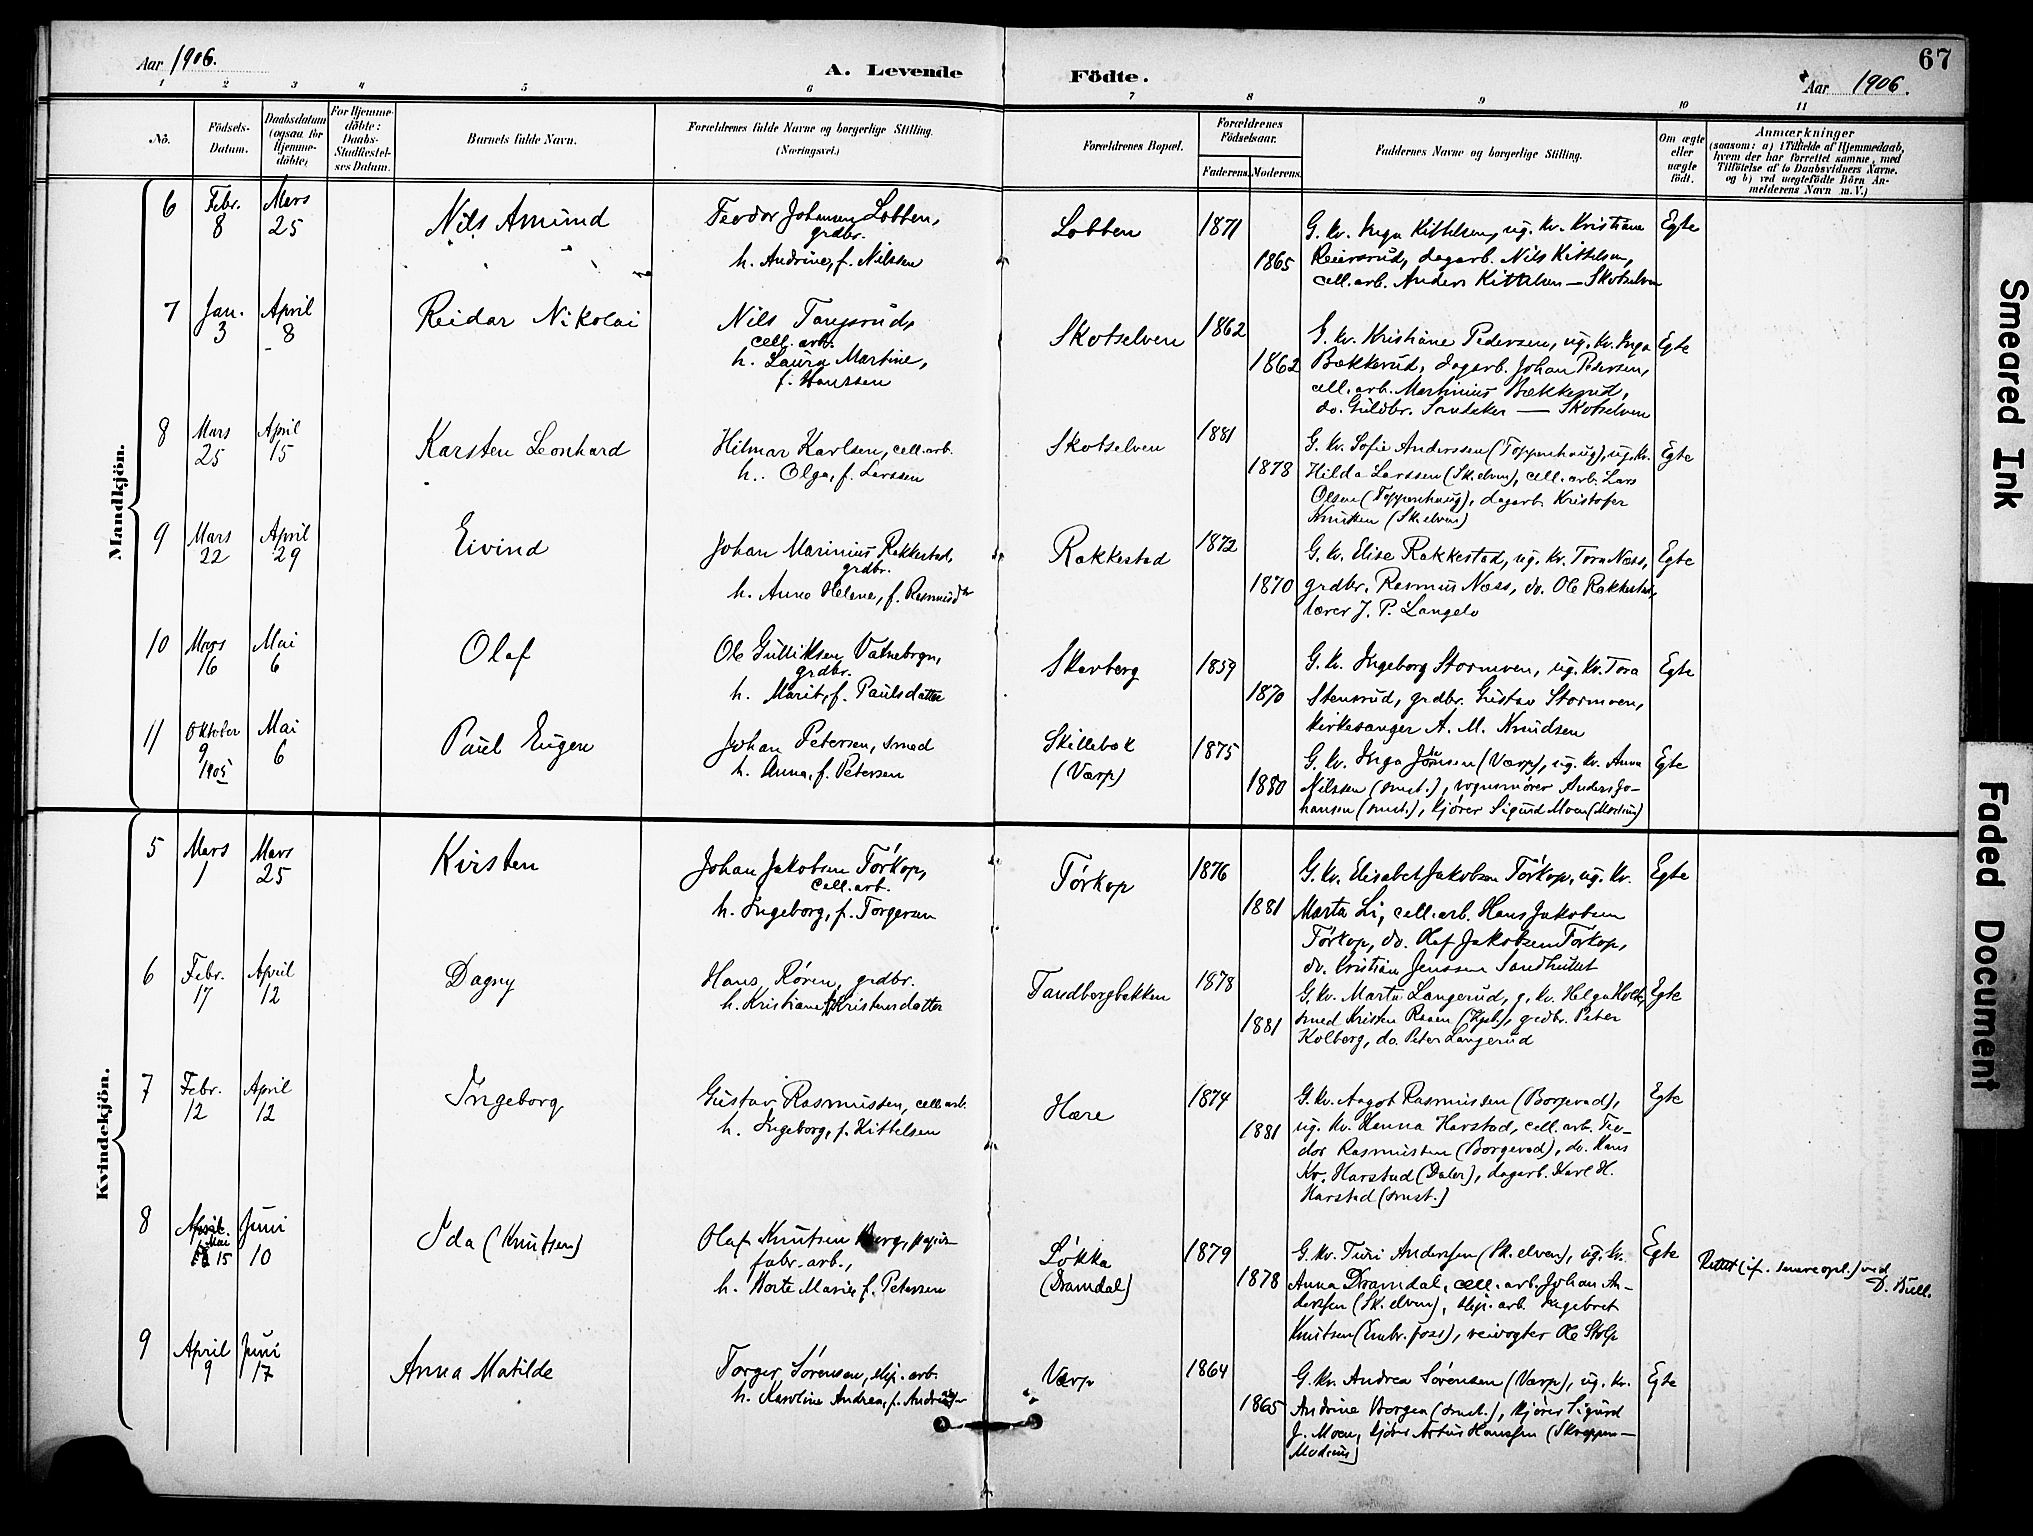 67
Aar 1906.
A. Levende Födte.
Aar 1906.
1 2 3 4 5 6 7 8 9 10 11
No.
Födsels-Datum.
Daabsdatum (ogsaa for Hjemme-döbte)
For Hjemme-döbte: Daabs-Stadfæstel-ses Datum.
Barnets fulde Navn.
Forældrenes fulde Navne og borgerlige Stilling.
(Næringsvei.)
Forældrenes Bopæl.
Forældrenes Födselsaar.
Faderens. Moderens.
Faddernes Navne og borgerlige Stilling.
Om ægte eller uægte födt.
Anmærkninger
(saasom: a) i Tilfælde af Hjemmedaab,
hvem der har forrettet samme, med
Tilföielse af to Daabsvidners Navne.
og b) ved uegtefödte Börn An-
melderens Navn m. V.)
Mandkjön.
6 Febr. 8 Mars 25 Nils Amund
Teodor Johannes Lobben,
grdbr.
h. Andrine, f. Nilssen
Lobben 1871 1865
G. kv. Inga Kittelsen, ug. kv. Kristiane
Reiersrud, dagarb. Nils Kittelsen,
cell. arb. Anders Kittelsen — Skotselven
Egte
7 Jan. 3 April 8 Reidar Nikolai
Nils Tangsrud,
cell. arb.
h. Laura Martine,
f. Hanssen
Skotselven 1862 1862
G. kv. Kristiane Pedersen, ug. kv. Inga
Bækkerud, dagarb. Johan Pedersen,
cell. arb. Martinius Bækkerud,
do. Guldbr. Sandaker — Skotselven
Egte
8 Mars 25 April 15 Karsten Leonhard
Hilmar Karlsen, cell. arb.
h. Olga, f. Larssen
Skotselven 1881 1878
G. kv. Sofie Anderssen (Toppenhaug), ug. kv.
Hilda Larssen (Sk. elven), cell. arb. Lars
Olsen (Toppenhaug), dagarb. Kristofer
Knutsen (Sk. elven)
Egte
9 Mars 22 April 29 Eivind
Johan Marinius Rakkestad,
grdbr.
h. Anne Helene, f. Rasmusd tr
Rakkestad 1872 1870
G. kv. Elise Rakkestad, ug. kv. Tora Næss,
grdbr. Rasmus Næss, do. Ole Rakkestad,
lærer J. P. Langelo
Egte
10 Mars 16 Mai 6 Olaf
Ole Gulliksen Vatnebryn,
grdbr.
h. Marit, f. Paulsdatter
Skarberg 1859 1870
G. kv. Ingeborg Stormoen, ug. kv. Tora
Stensrud, grdbr. Gustav Stormoen,
kirkesanger A. M. Knudsen
Egte
11 Oktober 9 1905 Mai 6 Paul Eugen
Johan Petersen, smed
h. Anna, f. Petersen
Skillebæk
(Værp)
1875 1880
G. kv. Inga Jonsen (Værp), ug. kv. Anna
Nilssen (smst.), vognsmører Anders Jo-
hansen (smst.), kjører Sigurd Moen (Modum)
Egte
Kvindekjön.
5 Mars 1 Mars 25 Kirsten
Johan Jakobsen Tórkop,
cell. arb.
h. Ingeborg, f. Torgersen
Tórkop 1876 1881
G. kv. Elisabet Jakobsen Tórkop, ug. kv.
Marta Li, cell. arb. Hans Jakobsen
Tórkop, do. Olaf Jakobsen Tórkop,
do. Kristian Jenssen Sandhullet
Egte
6 Febr. 17 April 12 Dagny
Hans Róren, grdbr.
h. Kristiane, f. Kristensdatter
Tandbergbakken 1878 1881
G. kv. Marta Langerud, g. kv. Helga Holt,
smed Kristen Raaen (Kjeb), grdbr. Peter
Kolberg, do. Peter Langerud
Egte
7 Febr. 12 April 12 Ingeborg
Gustav Rasmussen, cell. arb.
h. Ingeborg, f. Kittelsen
Hære 1874 1881
G. kv. Aagot Rasmussen (Borgevad),
ug. kv. Hanna Harstad, cell. arb. Teo-
dor Rasmussen (Borgevad), do. Hans
Kr. Harstad (Daler), dagarb. Karl H.
Harstad (smst.)
Egte
8 April Mai 15 Juni 10 Ida (Knutsen)
Olaf Knutsen Berg, papir-
fabr. arb.,
h. Borte Marie, f. Petersen
Lókka
(Dramdal)
1879 1878
G. kv. Turi Anderssen (Sk. elven), ug. kv.
Anna Dramdal, cell. arb. Johan An-
derssen (Sk. elven), slip. arb. Ingebret
Knutsen (Embr. foss), veivogter Ole Stolp
Egte
Rettet (if. senere opl.) ved
D. Bull.
9 April 9 Juni 17 Anna Matilde
Torger Sórensen, slip. arb.
h. Karoline Andrea, f.
Værp 1864 1865
G. kv. Andrea Sórensen (Værp), ug. kv.
Andrine Borgen (smst.), kjører Sigurd
J. Moen, kjører Artur Hanssen (Skreppen—
Modum)
Egte
Smeared Ink
Faded Document